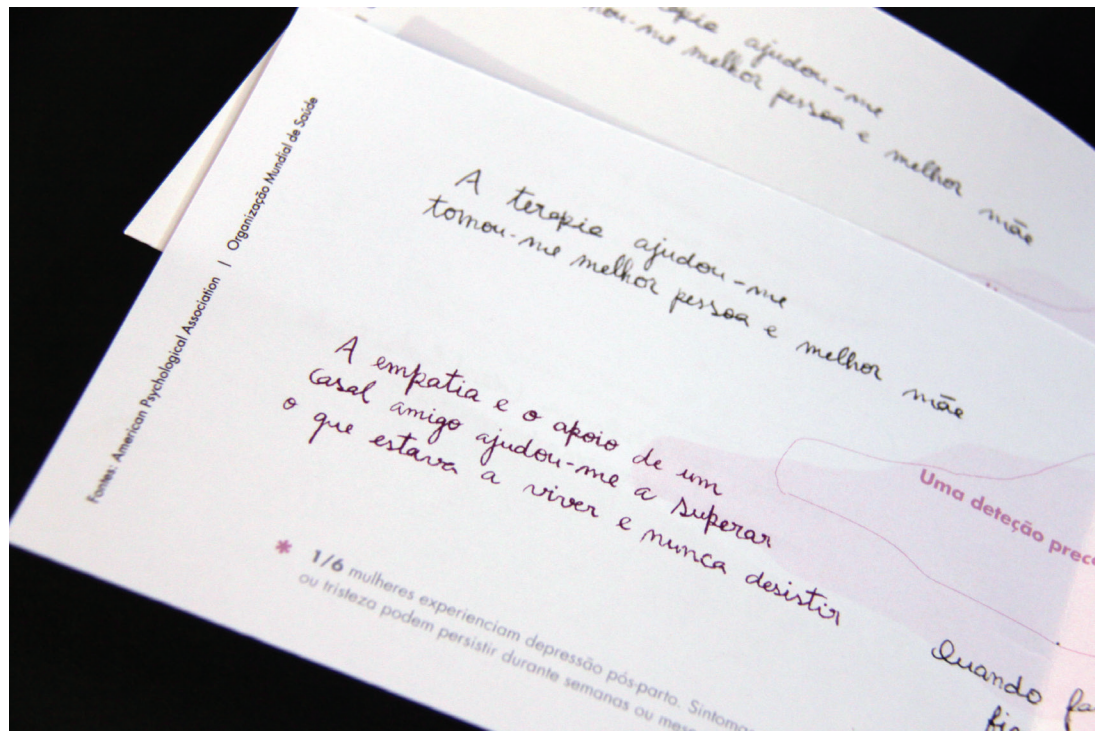 apia ajudou-me
ou-me melhor pessoa e melhor mãe
Fontes: American Psychological Association | Organização Mundial de Saúde
A terapia ajudou-me
tornou-me melhor pessoa e melhor mãe
A empatia e o apoio de um
casal amigo ajudou-me a superar
o que estava a viver e nunca desistir
Uma deteção prec
* 1/6 mulheres experienciam depressão pós-parto. Sintoma
ou tristeza podem persistir durante semanas ou mes
Quando fa